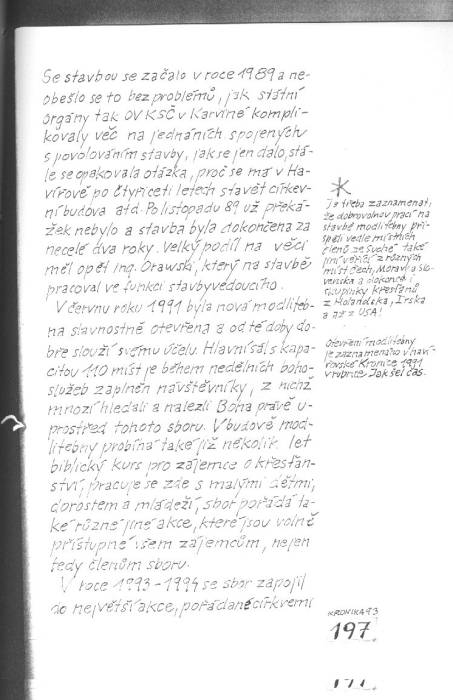 Se stavbou se začalo v roce 1989 a ne-
obešlo se to bez problémů, jak státní
orgány tak OV KSČ v Karviné kompli-
kovaly věc na jednáních spojených
s povolováním stavby, jak se jen dalo, stá-
le se opakovala otázka, proč se má v Ha-
vířově po čtyřiceti letech stavět církev-
ní budova atd. Po listopadu 89 už překá-
žek nebylo a stavba byla dokončena za
necelé dva roky. Velký podíl na věci
měl opět ing. Orawski, který na stavbě
pracoval ve funkci stavbyvedoucího.
V červnu roku 1991 byla nová modliteb-
na slavnostně otevřena a od té doby do-
bře slouží svému účelu. Hlavní sál s kapa-
citou 110 míst je během nedělních boho-
služeb zaplněn návštěvníky, z nichž
mnozí hledali a nalezli Boha právě u-
prostřed tohoto sboru. V budově mod-
litebny probíhá také již několik let
biblický kurs pro zájemce o křesťan-
ství, pracuje se zde s malými dětmi,
dorostem a mládeží, sbor pořádá ta-
ké různé jiné akce, které jsou volně
přístupné všem zájemcům, nejen
tedy členům sboru.
V roce 1993-1994 se sbor zapojil
do největší akce, pořádané církvemi
*
Je třeba zaznamenat,
že dobrovolnou prací na
stavbě modlitebny při-
spěli vedle místních
členů ze Suché také
jiní věřící z různých
míst Čech, Moravy, Slo-
venska a dokonce i
skupinky křesťanů
z Holandska, Irska
a až z USA!
Otevření modlitebny
je zaznamenáno v haví-
řovské Kronice 1991
v rubrice Jak šel čas.
KRONIKA 93
197